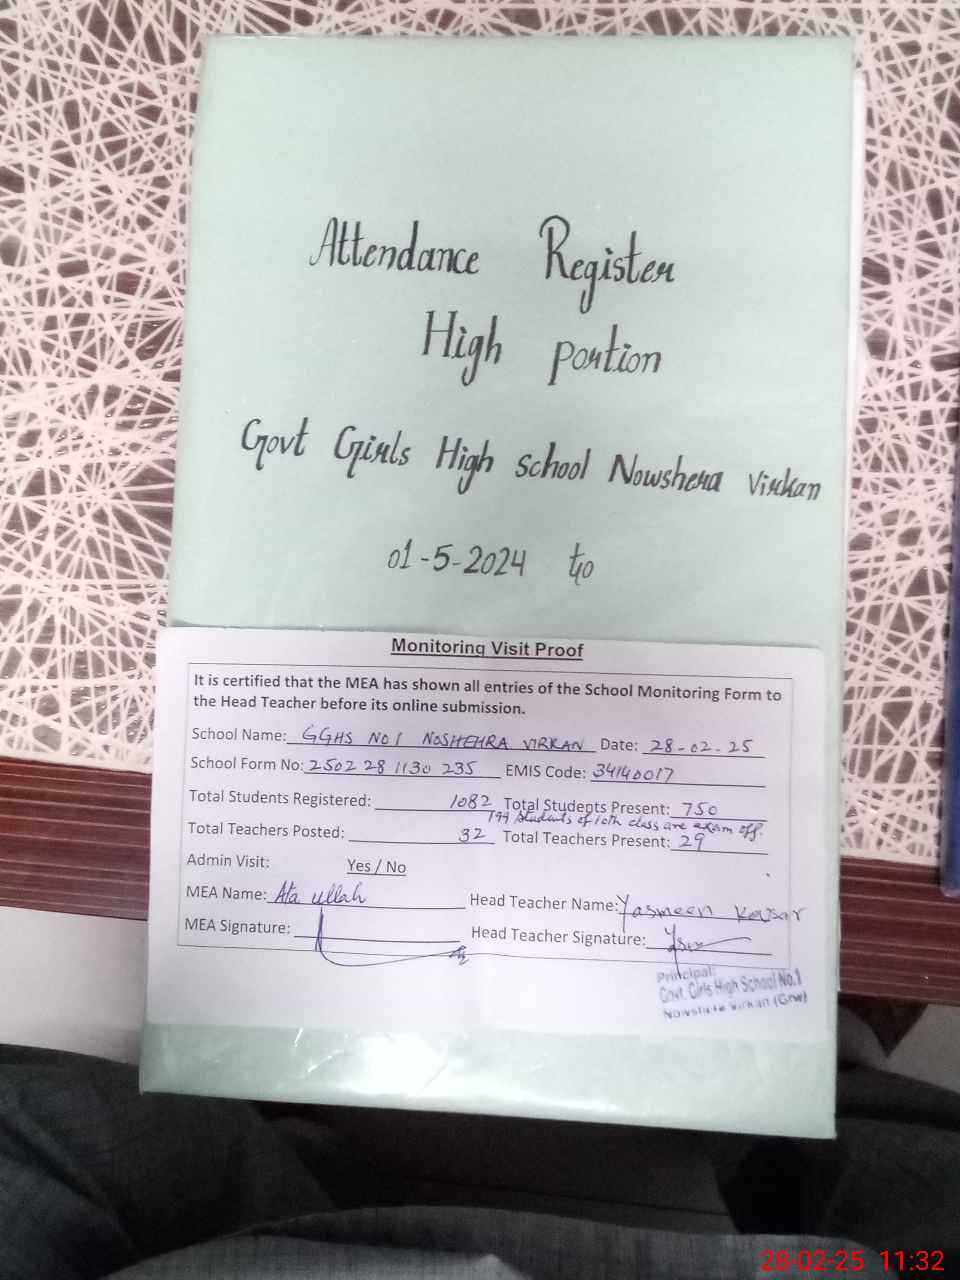 Attendance Register
High portion
Govt Girls High school Nowshera Virkan
01-5-2024 to
Monitoring Visit Proof
It is certified that the MEA has shown all entries of the School Monitoring Form to
the Head Teacher before its online submission.
School Name: GGHS NO 1 NOSHEHRA VIRKAN Date: 28-02-25
School Form No: 2502 28 1130 235 EMIS Code: 34140017
Total Students Registered: 1082 Total Students Present: 750
students of 10th class are exam off.
Total Teachers Posted: 32 Total Teachers Present: 29
Admin Visit: Yes / No
MEA Name: Ata ullah Head Teacher Name: Yasmeen Kousar
MEA Signature: Head Teacher Signature:
Principal
Govt. Girls High School No.1
Virkan (Grw)
28-02-25 11:32